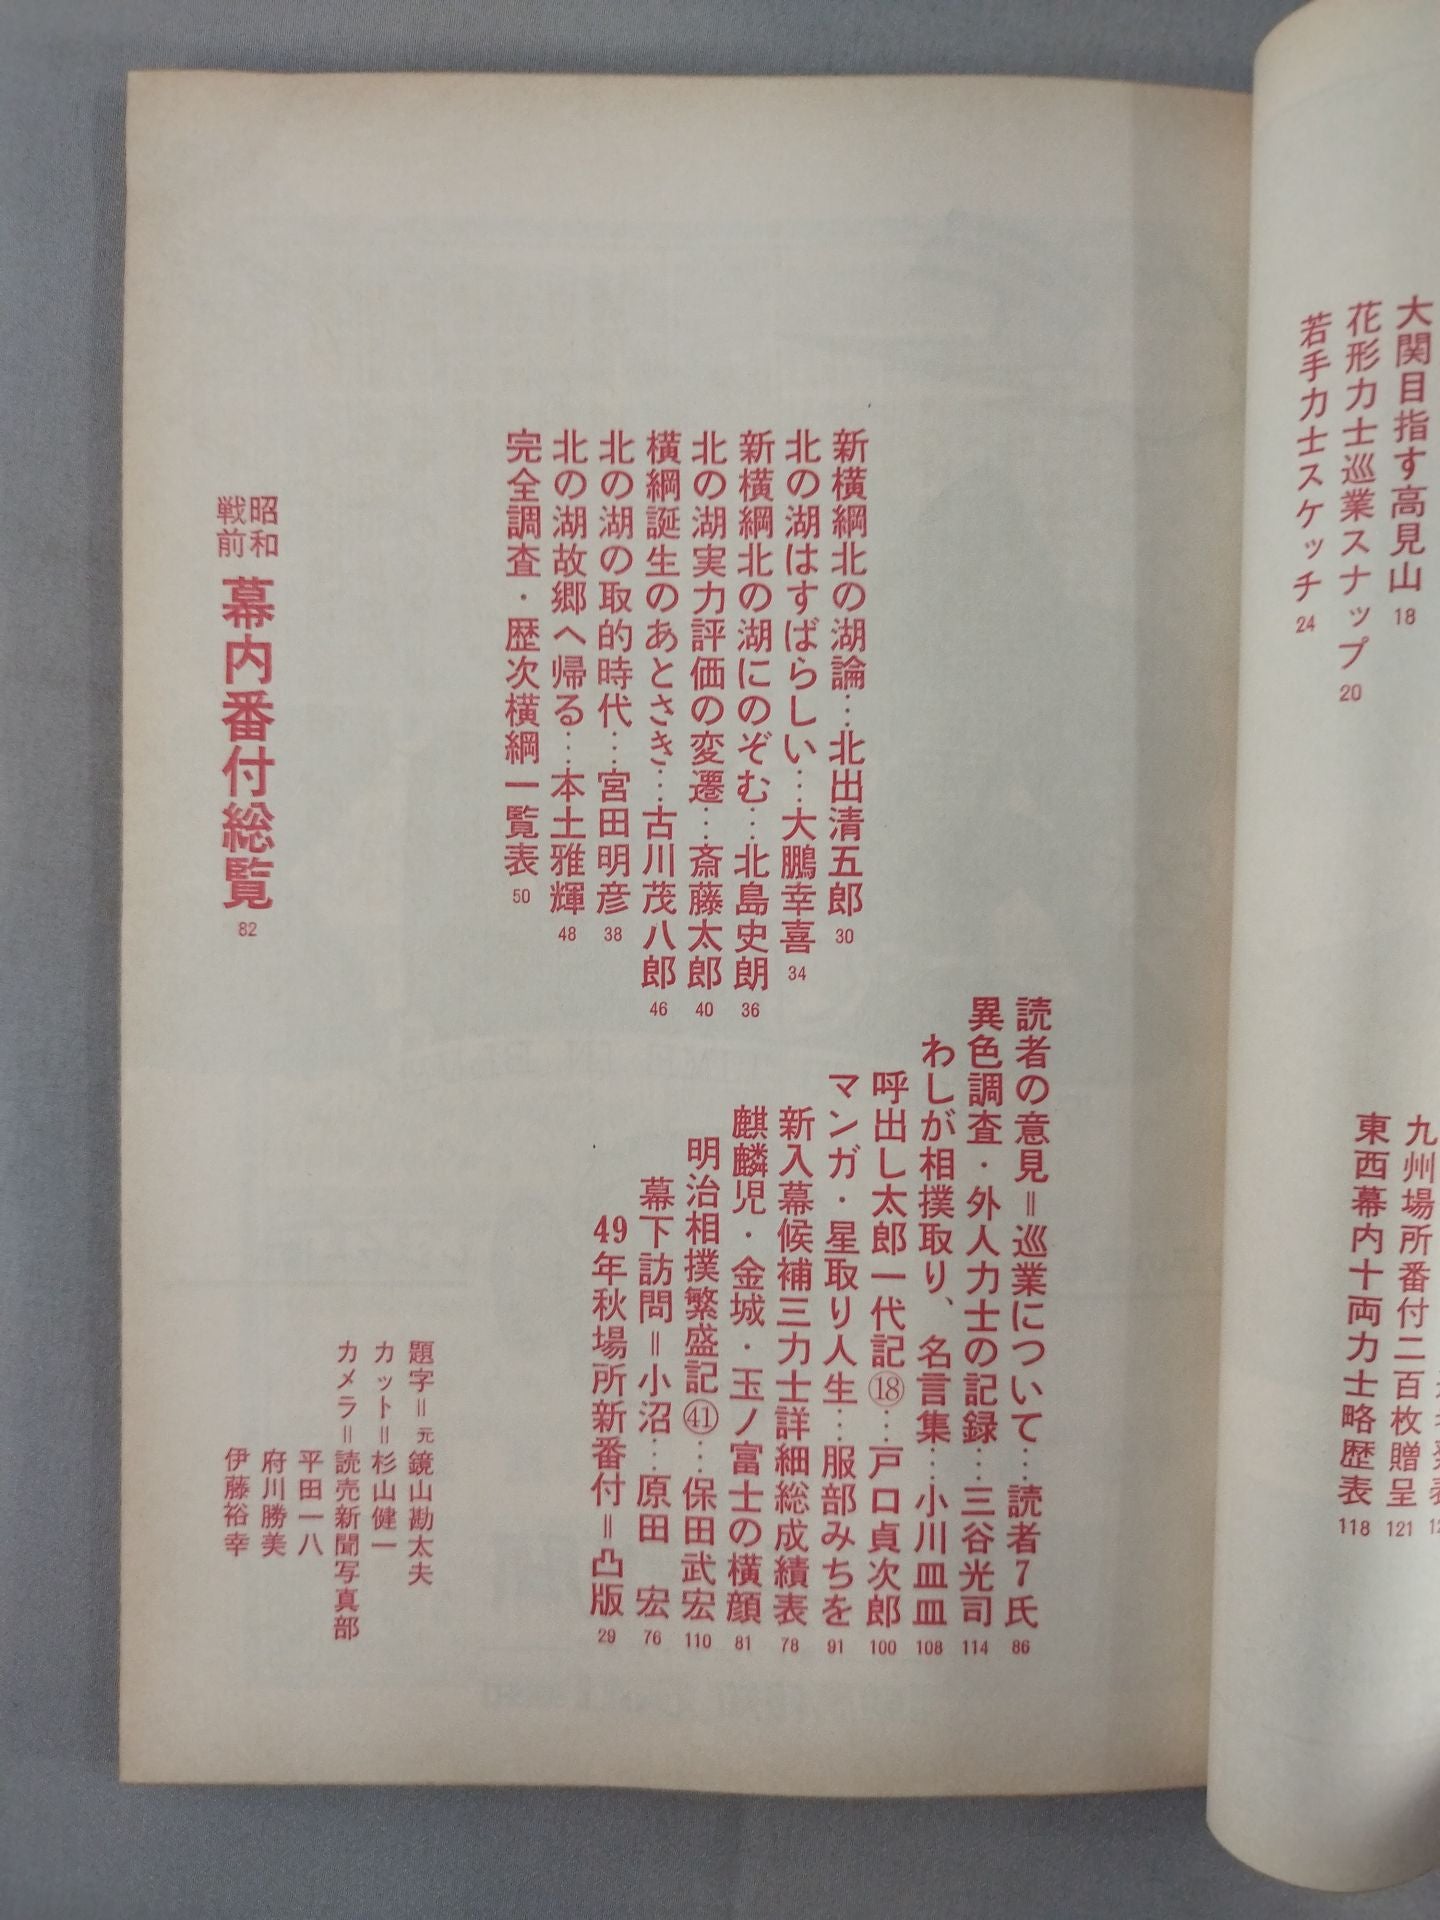 大関目指す高見山 18
花形力士巡業スナップ 20
若手力士スケッチ 24
九州場所番付二百枚贈呈 121
東西幕内十両力士略歴表 118
新横綱北の湖論…北出清五郎 30
北の湖はすばらしい…大鵬幸喜 34
新横綱北の湖にのぞむ…北島史朗 36
北の湖実力評価の変遷…斎藤太郎 40
横綱誕生のあとさき…古川茂八郎 46
北の湖の取的時代…宮田明彦 38
北の湖故郷へ帰る…本土雅輝 48
完全調査・歴次横綱一覧表 50
読者の意見＝巡業について…読者7氏 86
異色調査・外人力士の記録…三谷光司 114
わしが相撲取り、名言集…小川皿皿 108
呼出し太郎一代記⑱…戸口貞次郎 100
マンガ・星取り人生…服部みちを 91
新入幕候補三力士詳細総成績表 78
麒麟児・金城・玉ノ富士の横顔 81
明治相撲繁盛記㊶…保田武宏 110
幕下訪問＝小沼…原田　宏 76
49年秋場所新番付＝凸版 29
昭和戦前 幕内番付総覧 82
題字＝元鏡山勘太夫
カット＝杉山健一
カメラ＝読売新聞写真部
平田一八
府川勝美
伊藤裕幸